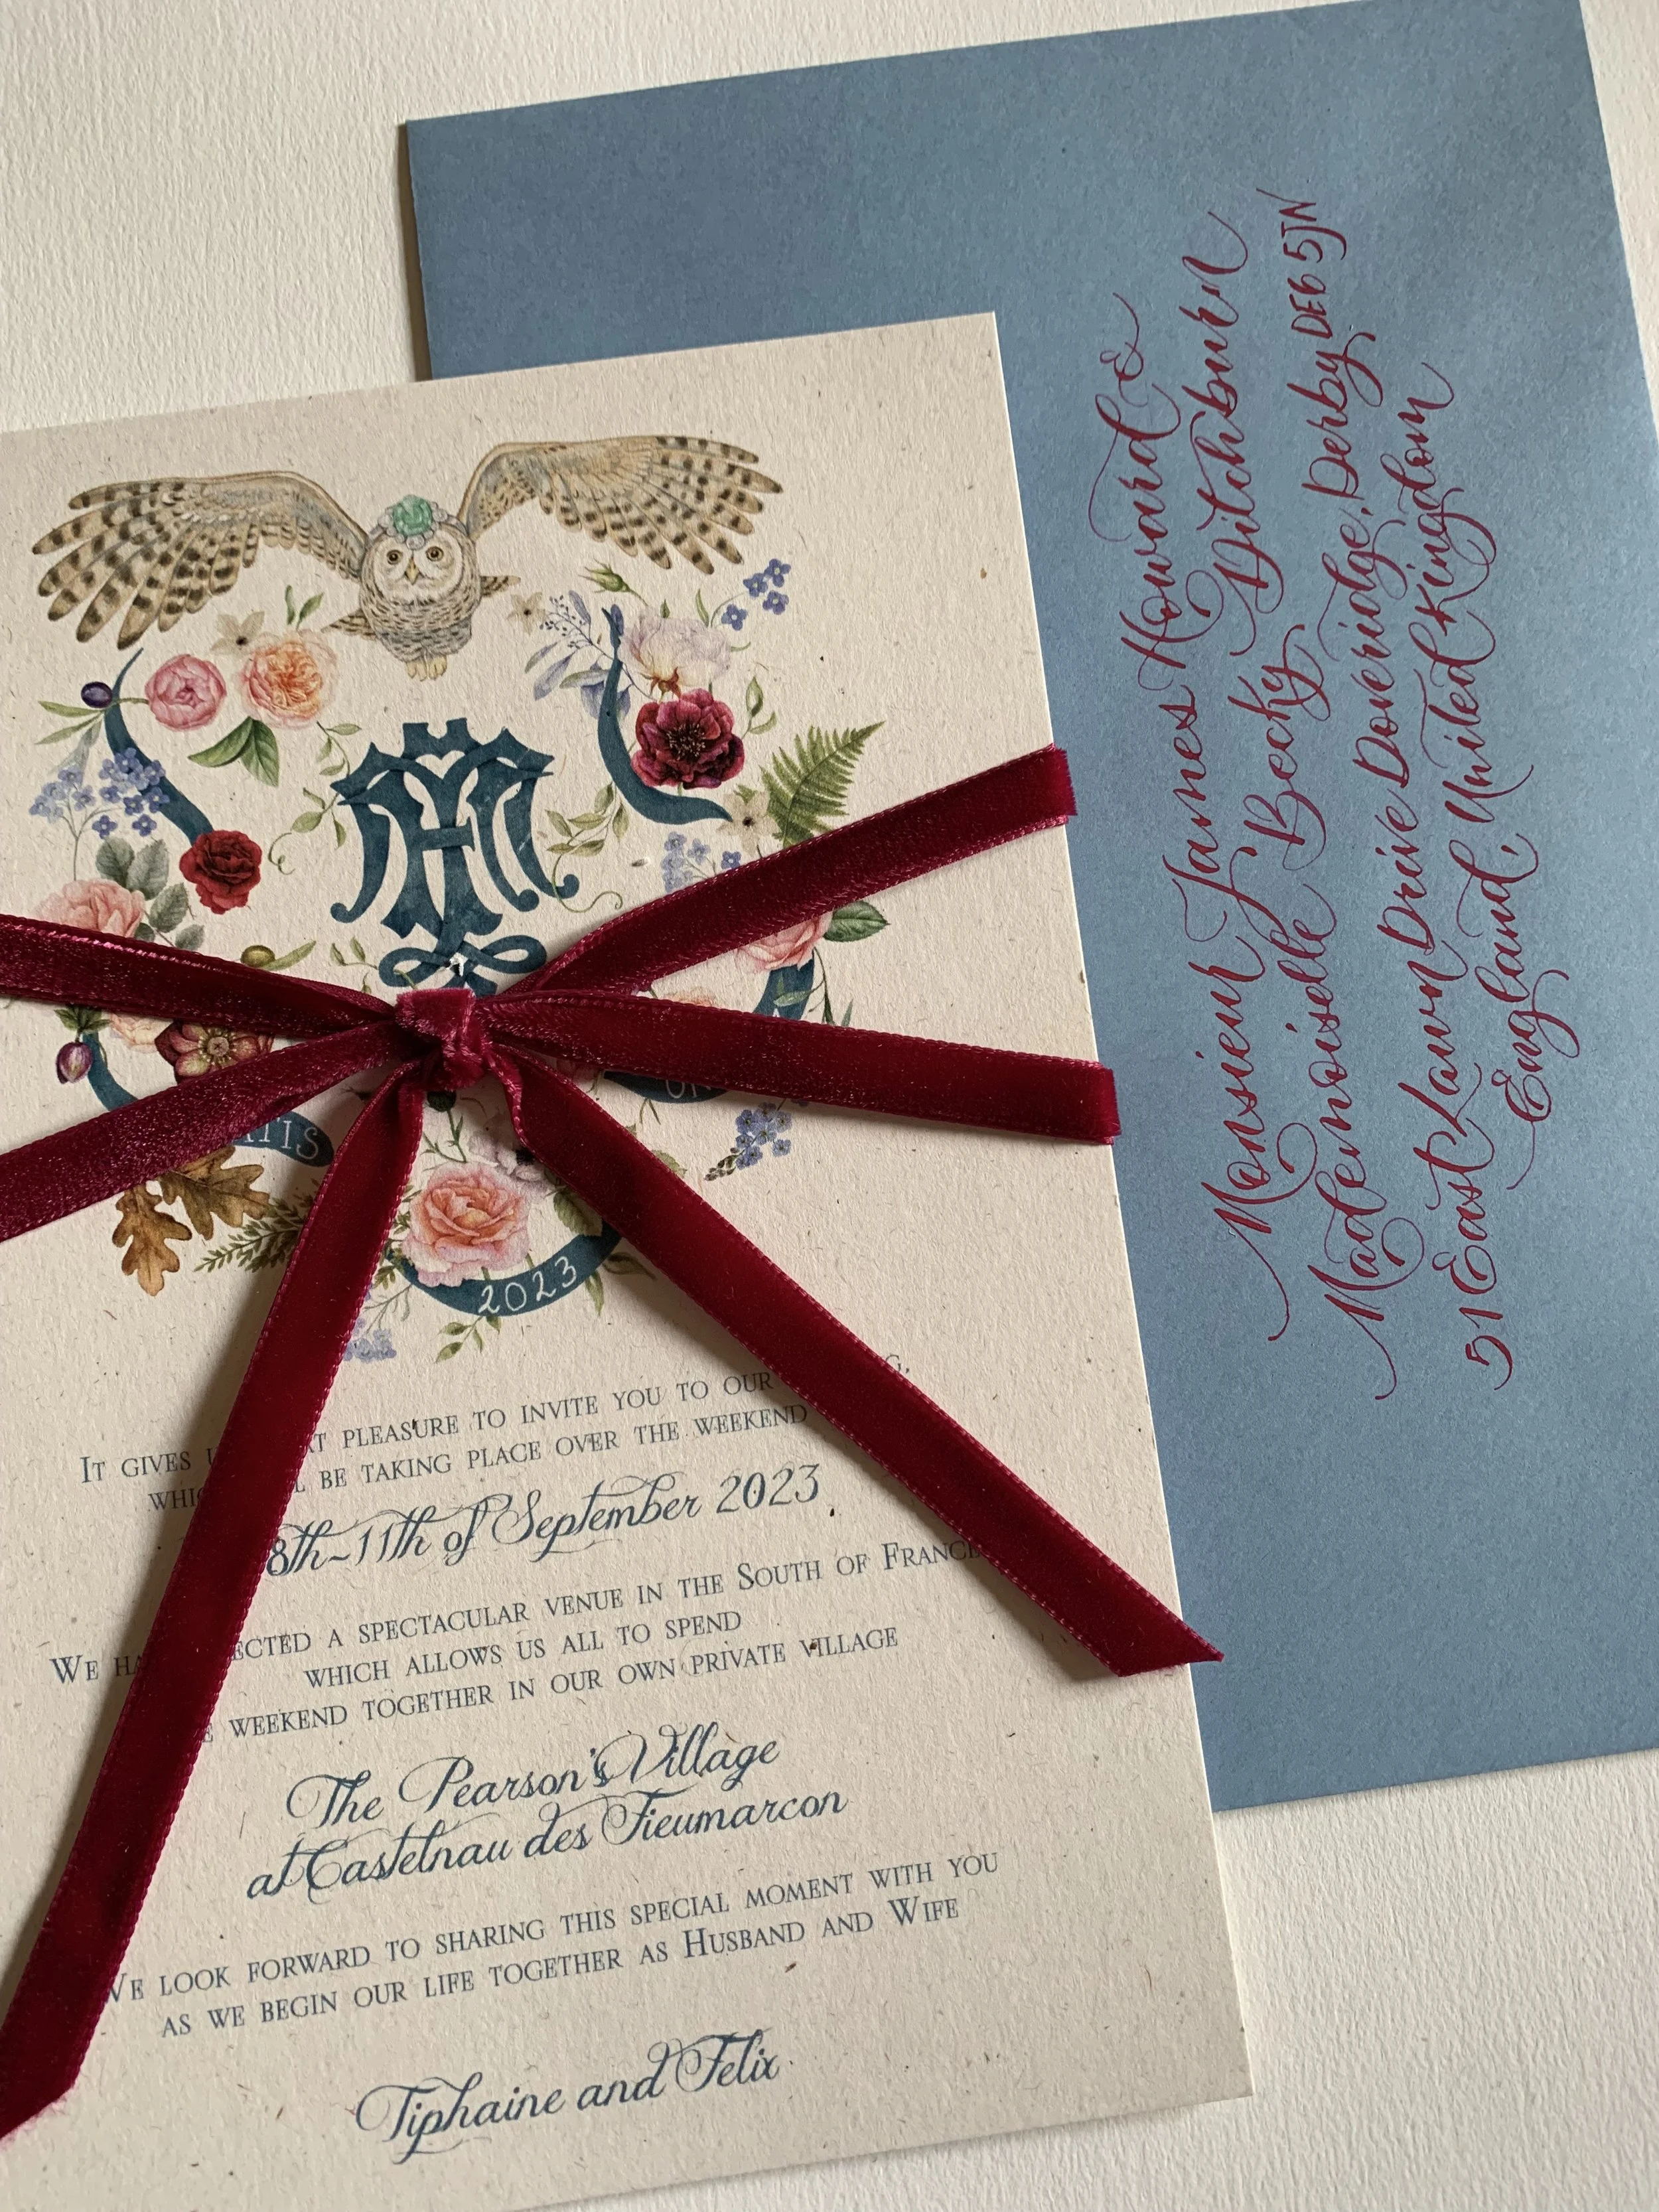 ATIS
2023
IT GIVES PLEASURE TO INVITE YOU TO OUR
BE TAKING PLACE OVER THE WEEKEND
8th-11th of September 2023
WE A SPECTACULAR VENUE IN THE SOUTH OF FRANCE
WHICH ALLOWS US ALL TO SPEND
WEEKEND TOGETHER IN OUR OWN PRIVATE VILLAGE
The Pearson's Village
at Castelnau des Fieumarcon
WE LOOK FORWARD TO SHARING THIS SPECIAL MOMENT WITH YOU
AS WE BEGIN OUR LIFE TOGETHER AS HUSBAND AND WIFE
Tiphaine and Felix
Monsieur James Howard &
Mademoiselle Becky Ditchburn
51 East Lawn Drive Doveridge, Derby DE6 5JN
England, United Kingdom